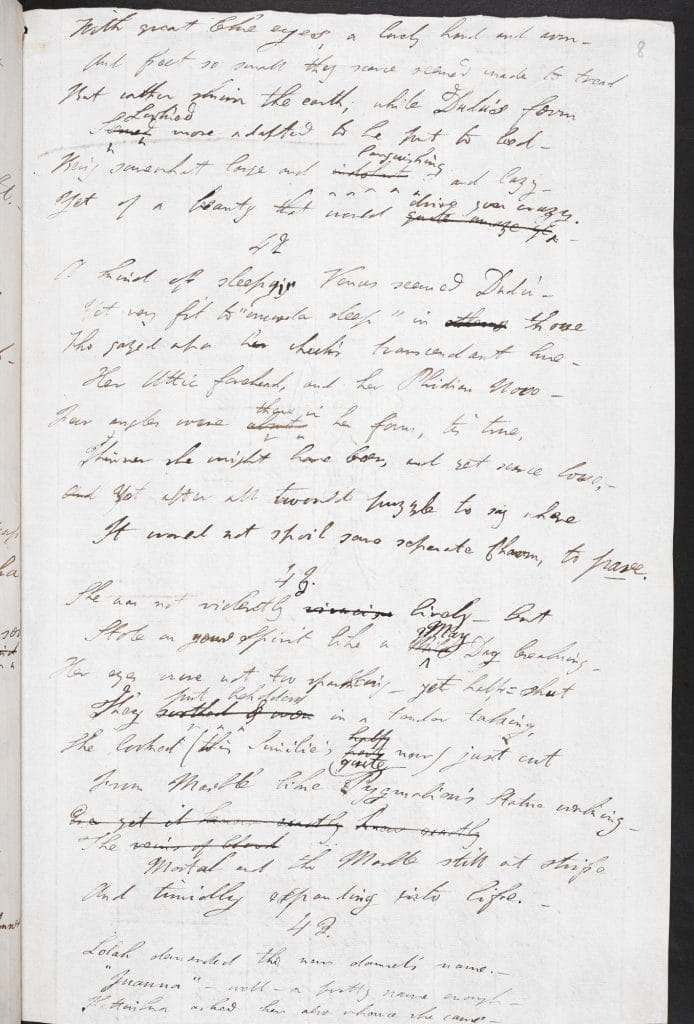 With great blue eyes, a lovely hand and arm—
8
And feet so small they scarce seemed made to tread
But rather skim the earth; while Dudu's form
Looked
Seemed more adapted to be put to bed—
languishing
Being somewhat large and indolent and lazy—
Yet of a beauty that would drive you crazy.
quite amaze ye—
42
A kind of sleepy Venus seemed Dudu—
Yet very fit to "murder sleep" in those
Who gazed upon her cheek's transcendant hue—
Her Attic forehead, and her Phidian Nose—
there in
Few angles were about her form, tis true,
Thinner she might have been, and yet scarce lose,—
And Yet after all twould puzzle to say where
It would not spoil some separate Charm, to pare.
43.
She was not violently lively— but
Stole on your Spirit like a May Day breaking—
Her eyes were not too sparkling— yet half-shut
put beholders
They in a tender taking,
She looked (this Similie's quite new) just cut
From Marble like Pygmalion's Statue waking—
exactly know exactly
The veins of blood
Mortal and the Marble still at strife
And timidly expanding into life.—
43.
Lolah demanded the new damsel's name.—
"Juanna"— well— a pretty name enough—
Katinka asked her also whence she came—